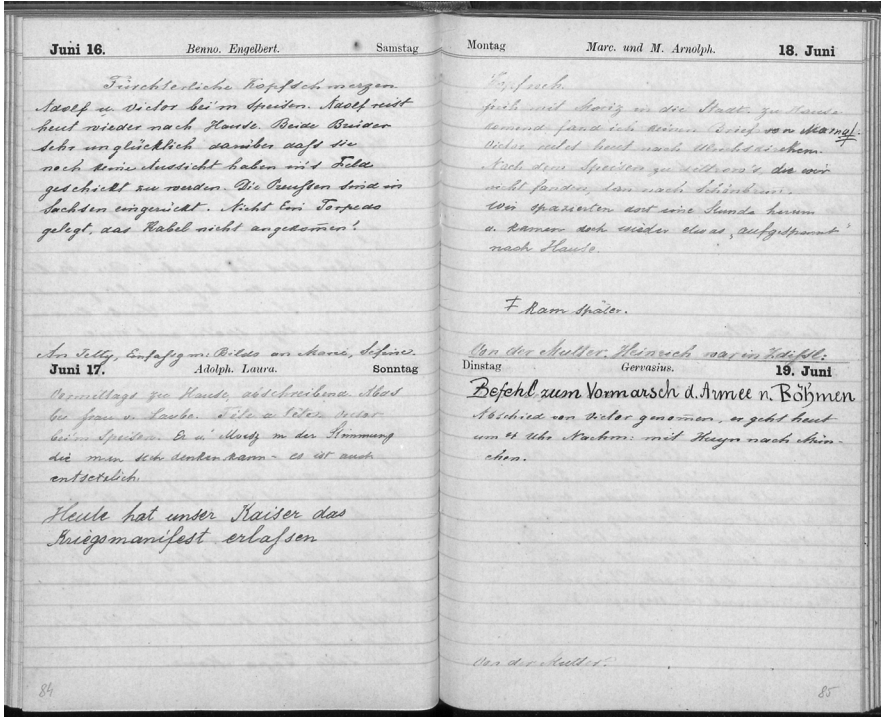 Juni 16. Benno. Engelbert. Samstag
Fürchterliche Kopfschmerzen
Adolf u. Victor beim Speisen. Adolf reist
heut wieder nach Hause. Beide Brüder
sehr unglücklich darüber daſs sie
noch keine Aussicht haben in's Feld
geschickt zu werden. Die Preuſsen sind in
Sachsen eingerückt. Nicht Ein Torpedo
gelegt, das Kabel nicht angekom̄en!
An Tetty, Bilds an Marie,
Juni 17. Adolph. Laura. Sonntag
Vormittags zu Hause, abschreibend Abds
bei Frau v.
beim Speisen. Er u. Moriz in der Stimmung
die man sich denken kann – es ist auch
entsetzlich.
Heute hat unser Kaiser das
Kriegsmanifest erlaſsen
84
Montag Marc. und M. Arnolph. 18. Juni
Kopfweh.
früh mit Moriz in die Stadt. zu Hause
fand ich keinen Brief von Mama!
Victor reist heut nach
Nach dem Speisen zu die wir
nicht fanden, dan nach Schönbrun.
Wir spazierten dort eine Stunde herum
u. kamen doch wieder etwas „aufgespannt“
nach Hause.
Ŧ Kam später.
Von der Mutter. Heinrich war in Zdiſsl:
Dinstag Gervasius. 19. Juni
Befehl zum Vormarsch d. Armee n. Böhmen
Abschied von Victor genom̄en, er geht heut
um Uhr Nachm: mit Huyn nach Mün-
chen.
Von der Mutter.
85